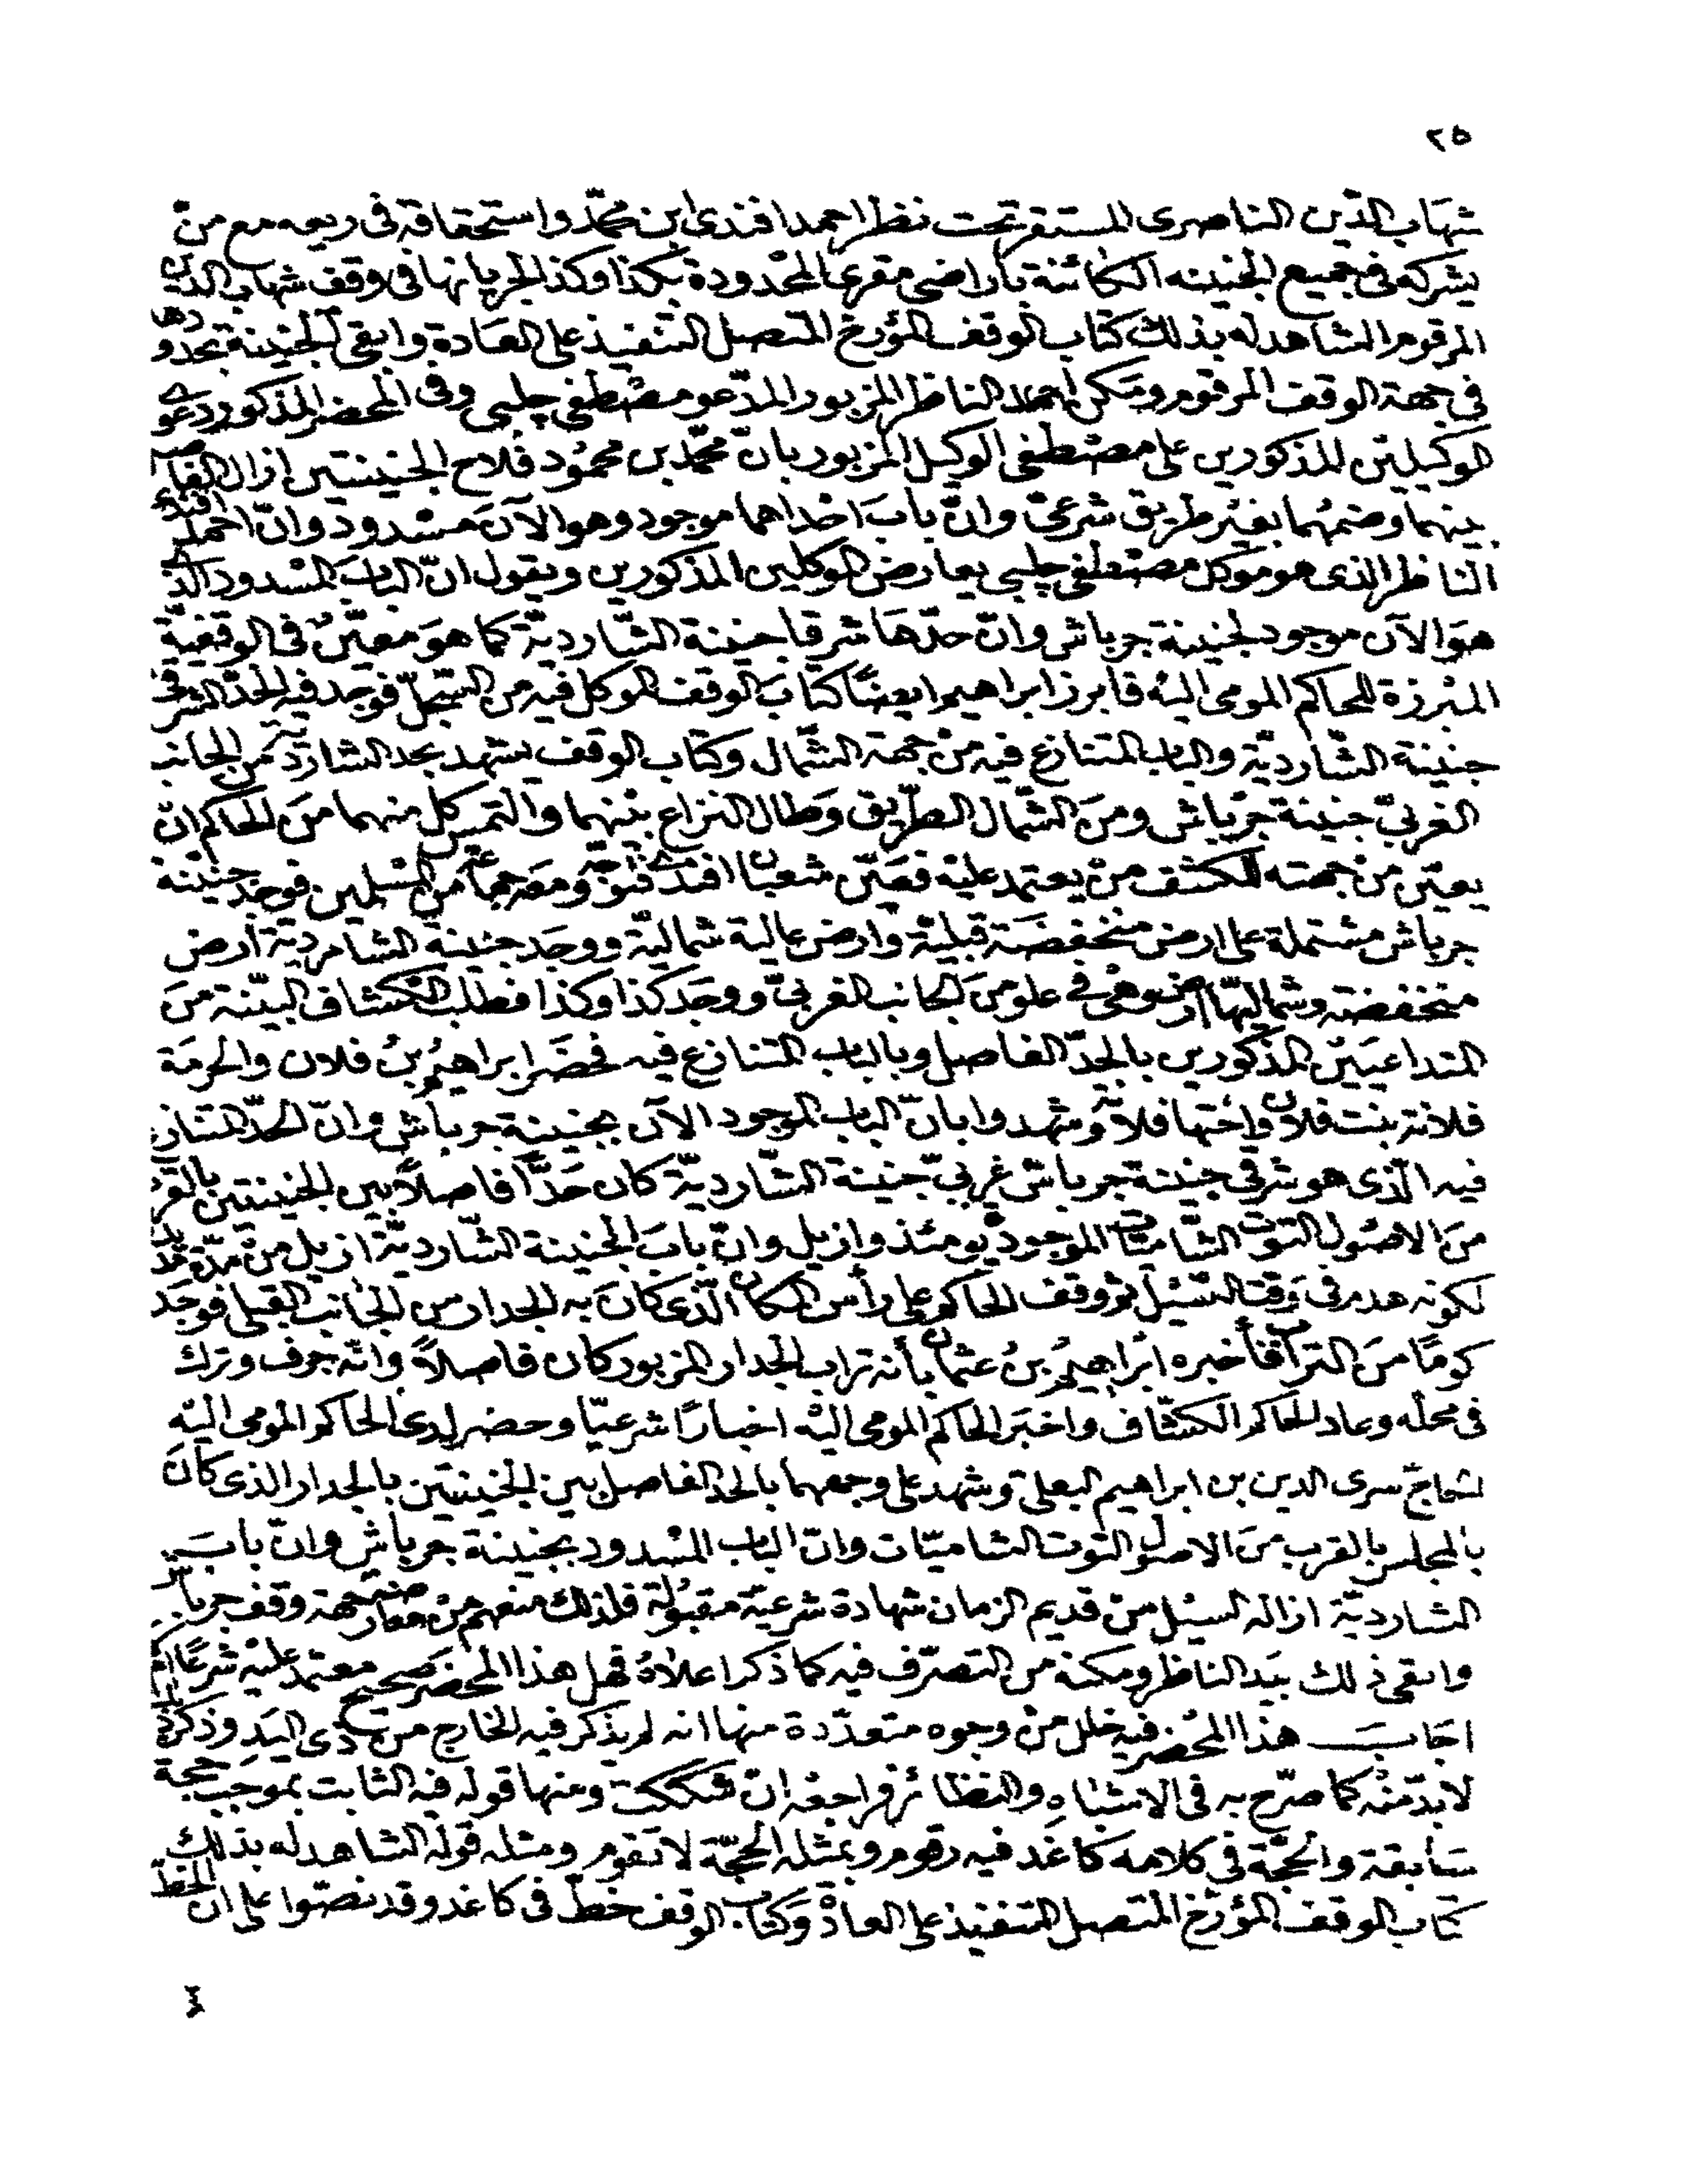 ٢٥
شهاب الدّين الناصرى المستقر تحت نظر احمد افندى ابن محمّد واستحقاقه فى ريعه مع من
يشركه فى جميع الجنينه الكائنة بأراضى مقرى المحدودة بكذا وكذا لجريانها فى وقف شهاب الدين
المرقوم الشاهد له بذلك كتاب الوقف المؤرخ المتصل التنفيذ على العادة وابقى الجنينة بحدودها
فى جهة الوقف المرقوم ومكن احمد الناظر المزبور المدّعو مصطفى چلبى وفى المحضر المذكور دعوى
الوكيلين المذكورين على مصطفى الوكيل المزبور بانّ محمّد بن محمُود فلاح الجنينتين ازال الفاصل
بينهما وضمهُما بغيْر طريق شرعىّ وانّ بابَ احْداهما موجود وهو الآنَ مسْدود وانّ احمد افندى
الناظر الذى هو موكل مصطفى چلبى يعارض الوكلين المذكورين ويقول انّ البابَ المسْدود الذى
هوَ الآن موجود لجنينة جرباش وانّ حدّهَا شرقا جنينة الشّارديّة كما هوَ معيّنٌ فى الوقفيّة
المبْرزة للحاكم المومى اليْه فابرز ابراهيم ايضًا كتابَ الوقف الموكل فيه من السّجلّ فوجد فيه الحدّ الشرقى
جنينة الشّارديّة والباب المتنازع فيه منْ جهة الشّمال وكتاب الوقف يشهد بحد الشارديّة من الجانب
الغربىّ جنينة جرْباش ومنَ الشّمال الطّريق وَطال النزاع بيْنهما والتمس كل منهما منَ الحاكم انّ
يعيّن منْ جهته للكشف منْ يعتمد عليْه فعَيّن شعبان افندى ومعه جماعة منَ المسْلمين فوجد جنينة
جرباش مشتملة على ارض منخفضَة قبليّة وَارض عالية شماليّة ووجَد جنينة الشارديّة ارض
منخفضة وشماليّها ارض وهْى فى علو منَ الجانب الغربىّ ووجَد كذا وكذا فطلب الكشاف البيّنة منَ
المتداعيَيْن المذكورين بالحدّ الفاصل وبالباب المتنازع فيه فحضَر ابراهيمُ بنُ فلان والحرمَة
فلانة بنت فلان واختها فلانة وشهدوا بانّ الباب الموجود الآن بجنينة جرباش وانّ الحدّ المتنازع
فيه الّذى هو شرقىّ جنينة جرباش غربىّ جنينة الشّارديّة كان حَدًّا فاصلًا بين الجنينتين بالقرب
منَ الاصُول التوت الشّاميّات الموجودة يومئذ وازيل وانّ بابَ الجنينة الشّارديّة ازيل منْ مدّة مديدة
لكونه هدم فى وَقت السّيْل ثم وقف الحاكم على رأس المكان الّذى كانَ به الجدار من الجانب القبلى فوجَد
كومًا منَ التراب فأخبره ابْراهيمُ بنُ عثمان بأنه تراب الجدار المزبور كان فاصلًا وانّه جرف وترك
فى محلّه وعاد للحاكم الكشّاف واخبَر الحاكم المومى اليْه اخبارًا شرعيّا وحضر لدى الحاكم المومى اليْه
الحاجّ سرى الدين بن ابراهيم البعلى وشهد على وجههما بالحد الفاصل بين الجنينتين بالجدار الذى كانَ
بالمجلس بالقرب منَ الاصول التوت الشاميّات وانّ الباب المسْدود بجنينة جرباش وانّ بابَ جنينة
الشارديّة ازاله السيْل منْ قديم الزمان شهادة شرعيّة مقبُولة فلذلك منعهم منْ معارضة جهة وقف جرباش
وابقى ذلك بيَد الناظر ومكنه من التصرّف فيه كما ذكر اعلاهُ فهل هذا المحْضر صَحيح معتمد عليْه شرعًا ام لا
اجَابَ هذا المحْضر فيه خلل منْ وجوه متعدّدة منها انه لم يذكر فيه الخارج من ذى اليَدِ وذكرهُ
لابدّ منْه كما صرّح به فى الاشباهِ والنظائر فراجعْه انْ شككت ومنها قوله فيه الثابت بموجَب حجة
سَابقة والحجّة فى كلامه كاغد فيه رقوم وبمثله الحجّة لا تقوم ومثله قوله الشاهد له بذلك
كتاب الوقف المؤرّخ المتصل التنفيذ على العادة وكتاب الوقف خطّ فى كاغد وقد نصّوا على ان الخطّ